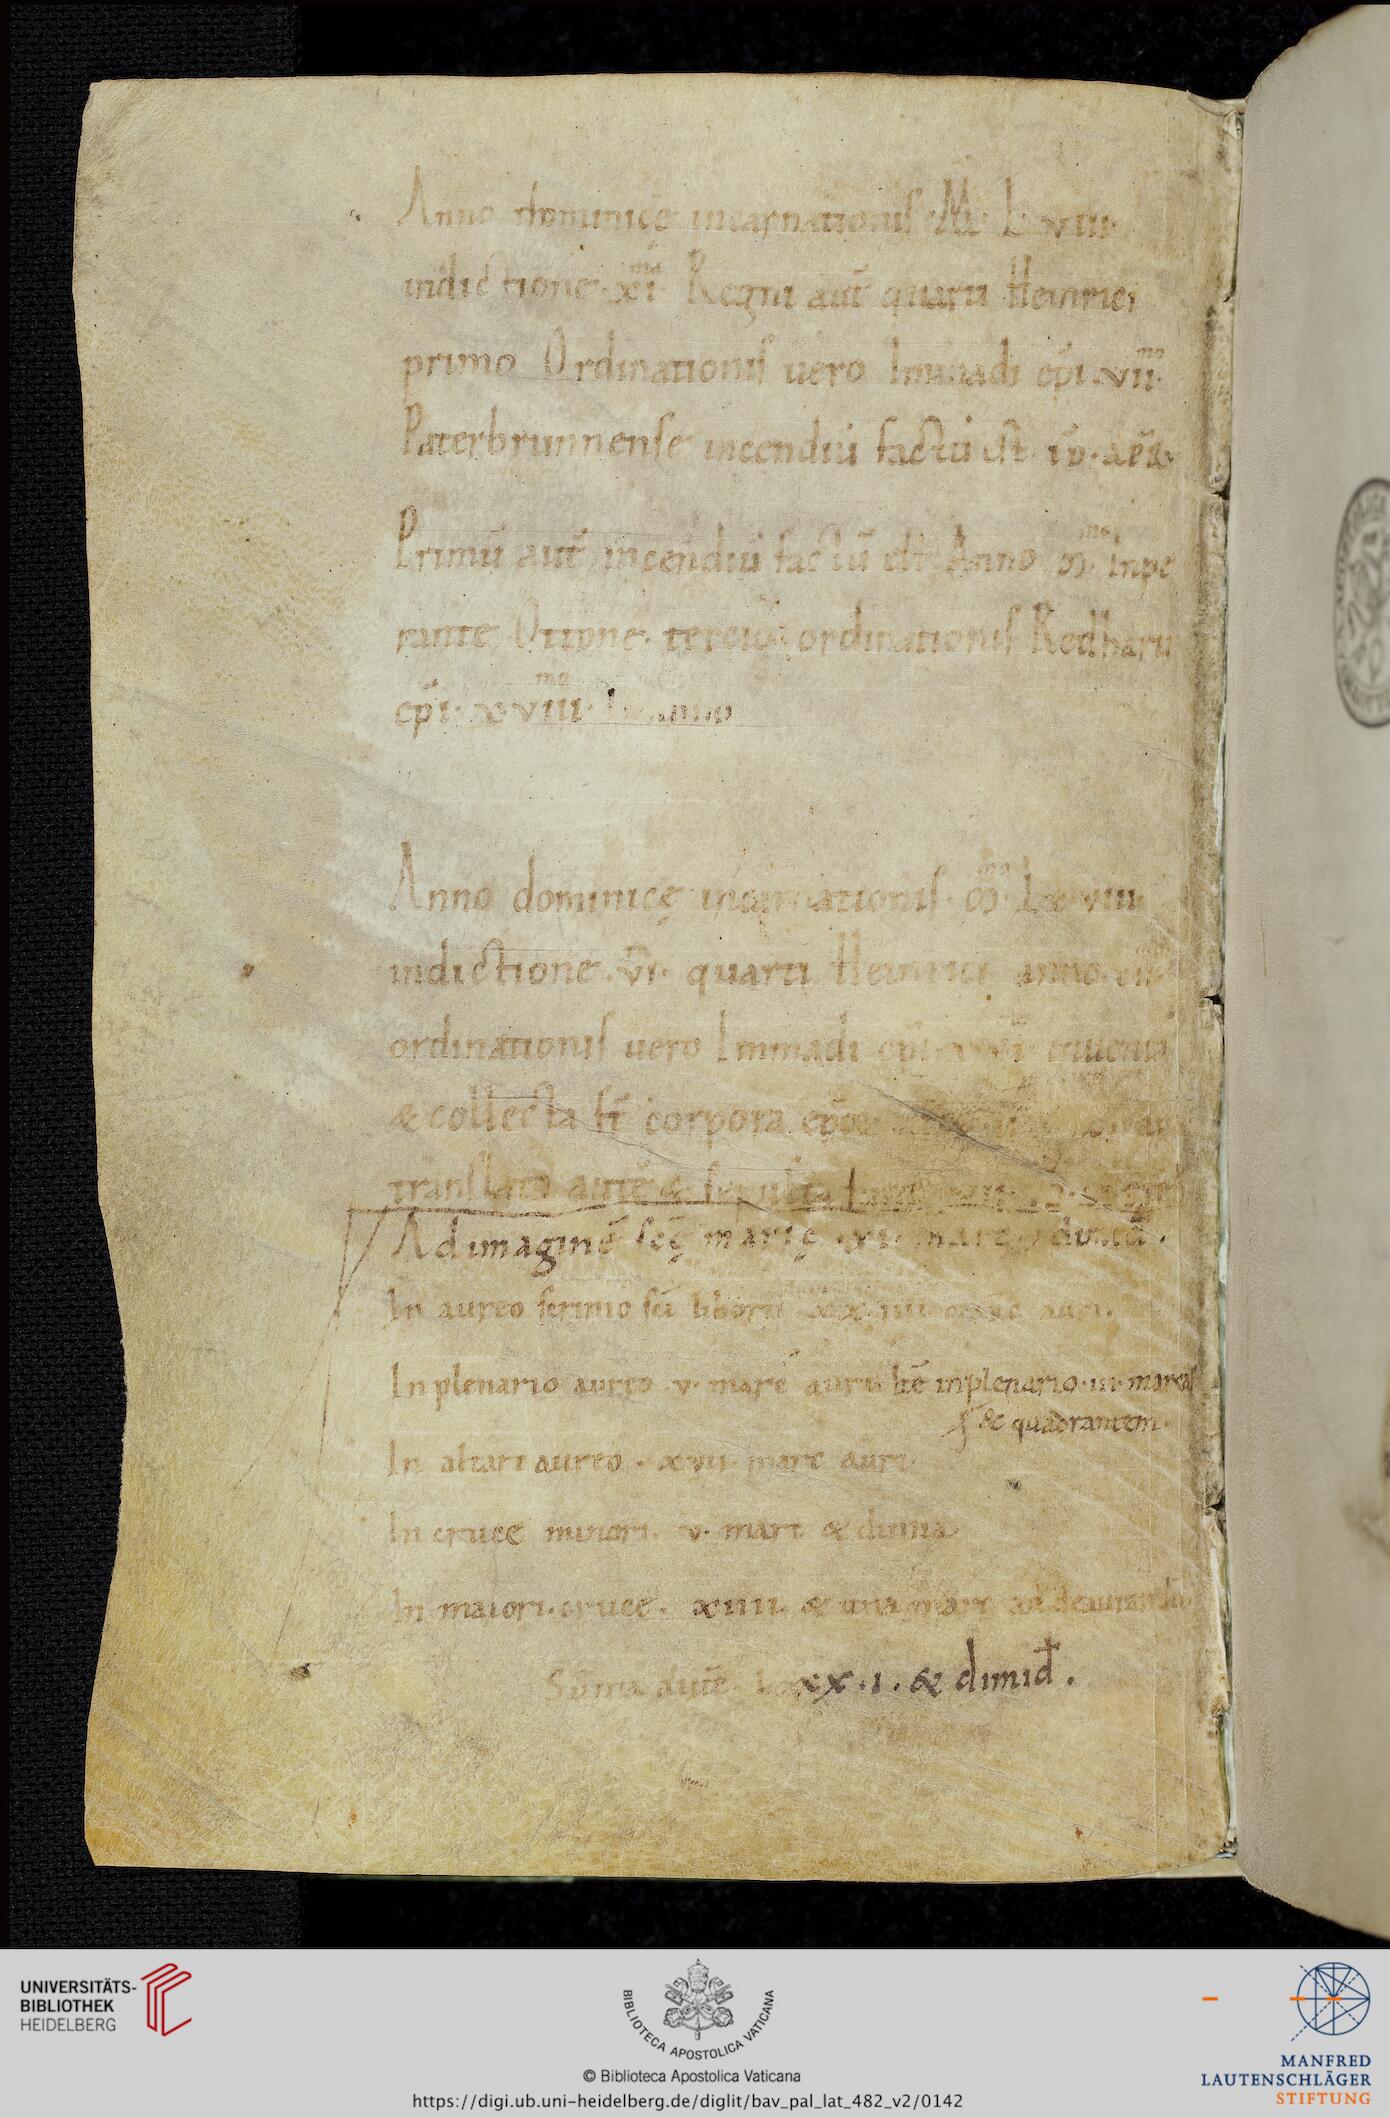 Anno dominicę incarnationis · M · L · viii ·
indictione · xi · ma Regni aut̄ quarti Heinrici
primo Ordinationis uero Immadi ep̄i · vii · mo
Paterbrunnense incendiū factū est
Primū aut̄ incendiū factū est Anno Ꝏ · mo Inpe
rante Ottone · tercio · ordinationis Retharii
ep̄i · xviii · mo
Anno dominicę incarnationis · Ꝏ · Lxviii
indictione · vi · quarti Heinrici anno
ordinationis uero Immadi ep̄i inuenta
& collecta st̄ corpora
translata autē & sepulta
Ad imaginē scę marię · xi · marc · & dimid
In aureo scrinio sci liborii xx · iiii marc auri ·
In plenario aureo · v · marc auri Itē in plenario · iii · marcas
& quadrantem ·
In altari aureo · xvii · marc auri
In cruce minori · v · marc & dimia
In maiori · cruce · xiiii · & una marc ad deaurandū
Suma autē · Lxxx · i · & dimid̄ ·
UNIVERSITÄTS-
BIBLIOTHEK
HEIDELBERG
BIBLIOTECA APOSTOLICA VATICANA
© Biblioteca Apostolica Vaticana
https://digi.ub.uni-heidelberg.de/diglit/bav_pal_lat_482_v2/0142
MANFRED
LAUTENSCHLÄGER
STIFTUNG